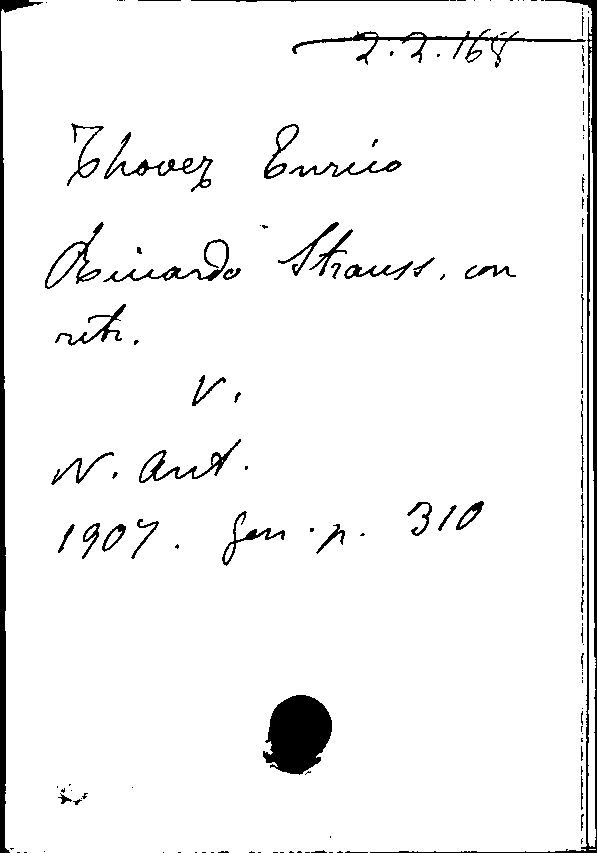 2.2.168
Thovez Enrico
Riccardo Strauss, con
ritr.
V.
N. Ant.
1907. Gen. p. 310